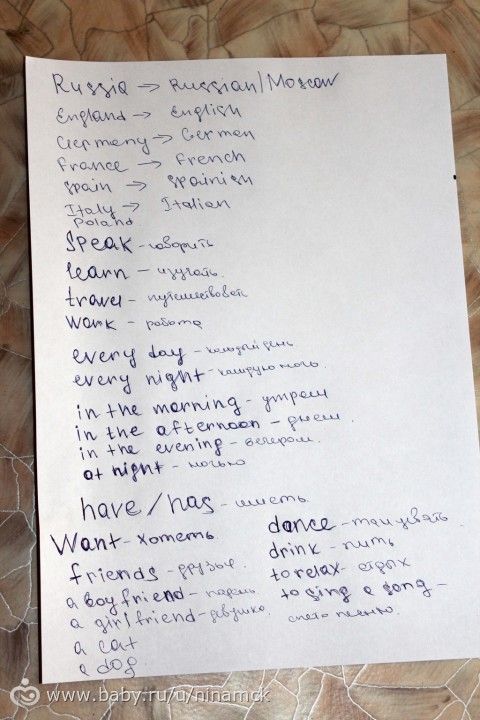 Russia → Russian/Moscow
England → English
Germeny → Germen
France → French
Spain → Spainish
Italy → Italian
Poland
Speak - говорить
learn - изучать.
travel - путешествовать
Work - работа
every day - каждый день
every night - каждую ночь.
in the morning - утрем
in the afternoon - днем.
in the evening - вечером.
at night - ночью
have/has - иметь
Want - хотеть
friends - друзья.
a boyfriend - парень
a girlfriend - девушка
a cat
a dog
dance - танцевать.
drink - пить
to relax - отдых
to sing a song -
спето песню.
www.baby.ru/u/ninamck